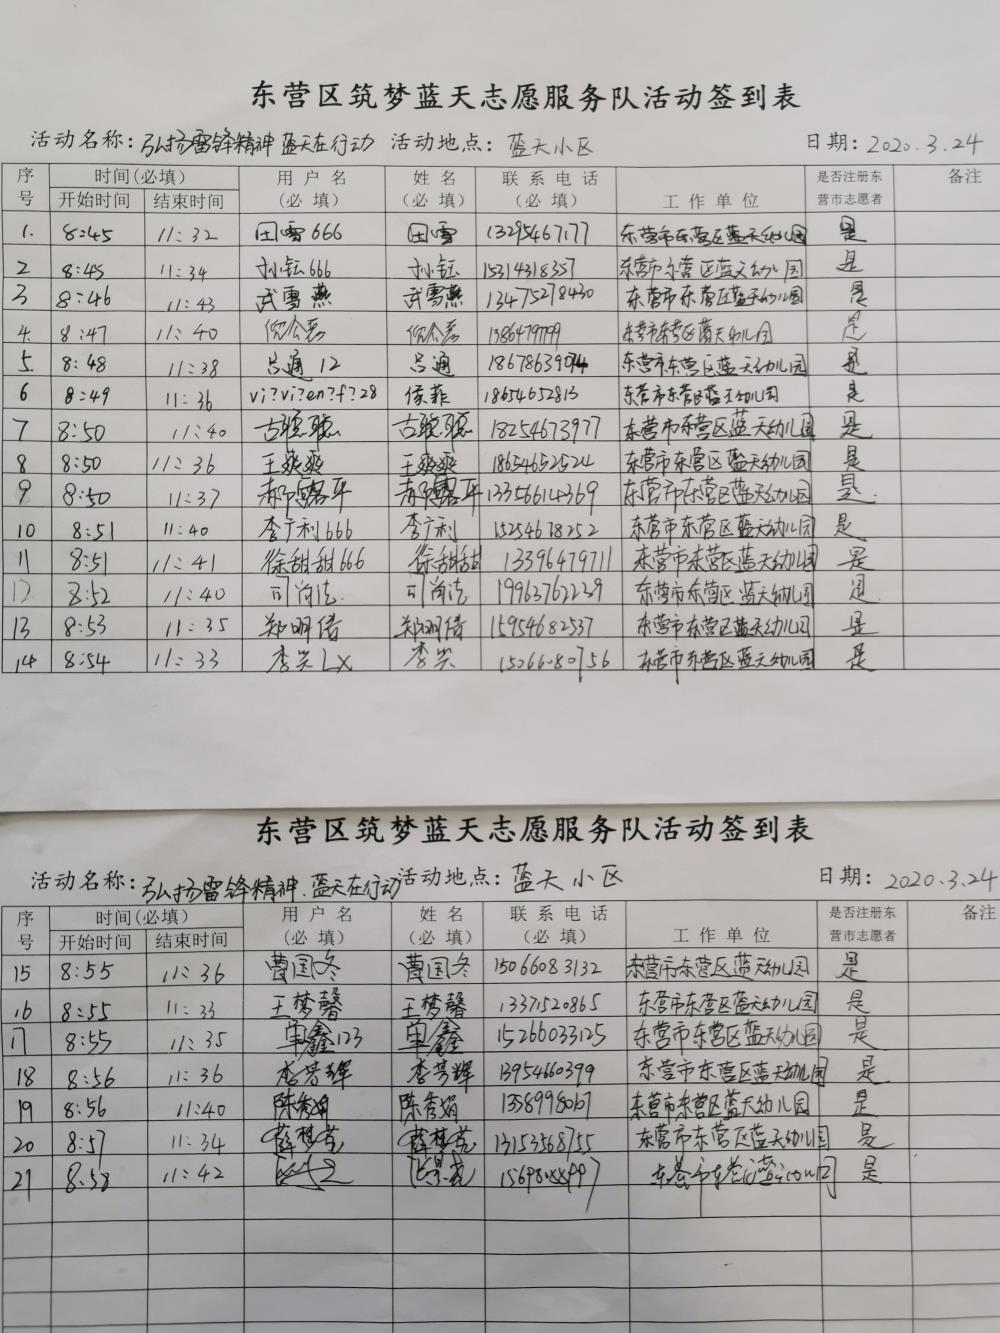 东营区筑梦蓝天志愿服务队活动签到表
活动名称：弘扬雷锋精神 蓝天在行动 活动地点：蓝天小区 日期：2020.3.24
序号 时间(必填) 开始时间 结束时间 用户名(必填) 姓名(必填) 联系电话(必填) 工作单位 是否注册东营市志愿者 备注
1. 8:45 11:32 田雪666 田雪 13295467177 东营市东营区蓝天幼儿园 是
2 8:45 11:34 孙钰666 孙钰 15314318357 东营市东营区蓝天幼儿园 是
3 8:46 11:43 武雪燕 武雪燕 13475278430 东营市东营区蓝天幼儿园 是
4. 8:47 11:40 东营市东营区蓝天幼儿园 是
5. 8:48 11:38 吕通12 吕通 东营市东营区蓝天幼儿园 是
6 8:49 11:36 vi?vi?en?f?28 侯菲 18654652813 东营市东营区蓝天幼儿园 是
7 8:50 11:40 古聪聪 古聪聪 18254673977 东营市东营区蓝天幼儿园 是
8 8:50 11:36 王爽爽 王爽爽 18654652524 东营市东营区蓝天幼儿园 是
9 8:50 11:37 13356614369 东营市东营区蓝天幼儿园 是.
10 8:51 11:40 李广利666 李广利 15254678252 东营市东营区蓝天幼儿园 是
11 8:51 11:41 徐甜甜666 徐甜甜 13396479711 东营市东营区蓝天幼儿园 是
12 8:52 11:40 19963762239 东营市东营区蓝天幼儿园 是
13 8:53 11:35 郑明倩 郑明倩 15954682537 东营市东营区蓝天幼儿园 是
14 8:54 11:33 李兴LX 李兴 15066080756 东营市东营区蓝天幼儿园 是
东营区筑梦蓝天志愿服务队活动签到表
活动名称：弘扬雷锋精神.蓝天在行动 活动地点：蓝天小区 日期：2020.3.24
序号 时间(必填) 开始时间 结束时间 用户名(必填) 姓名(必填) 联系电话(必填) 工作单位 是否注册东营市志愿者 备注
15 8:55 11:36 曹国冬 曹国冬 15066083132 东营市东营区蓝天幼儿园 是
16 8:55 11:33 王梦馨 王梦馨 13371520865 东营市东营区蓝天幼儿园 是
17 8:55 11:35 15266033125 东营市东营区蓝天幼儿园 是
18 8:56 11:36 李芳辉 李芳辉 13954660399 东营市东营区蓝天幼儿园 是
19 8:56 11:40 陈秀娟 陈秀娟 东营市东营区蓝天幼儿园 是
20 8:57 11:34 13153568755 东营市东营区蓝天幼儿园 是
21 8:58 11:42 东营市东营区蓝天幼儿园 是